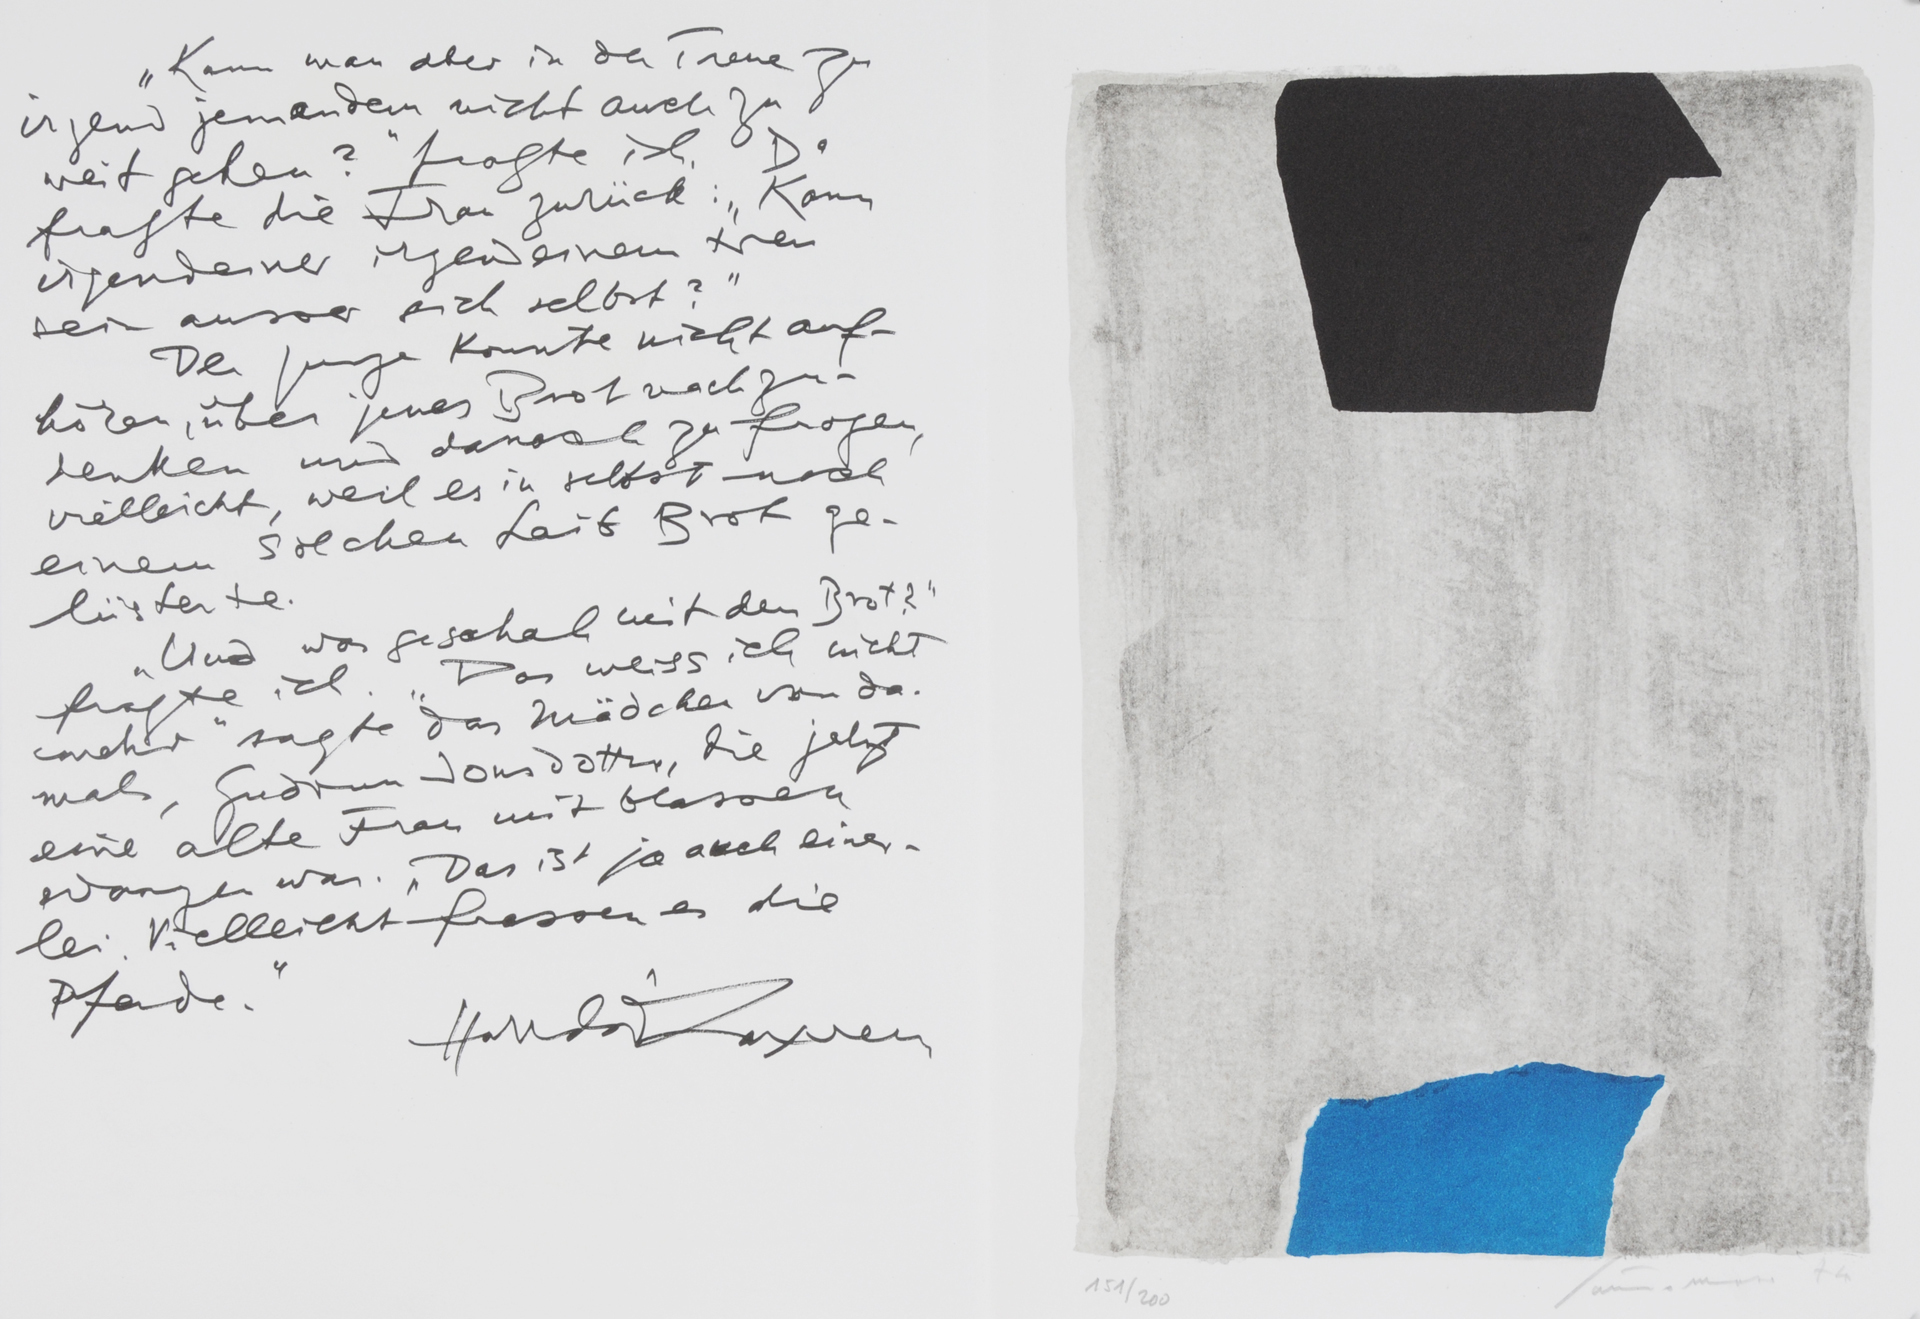 „Kann man aber in der Treue zu
irgend jemandem nicht auch zu
weit gehen?" fragte ich. Da
fragte die Frau zurück: „Kann
irgendeiner irgendeinem treu
sein ausser sich selbst?"
Der Junge konnte nicht auf-
hören, über jenes Brot nachzu-
denken und danach zu fragen,
vielleicht, weil es in selbst nach
einem solchen Laib Brot ge-
lüstete.
„Und was geschah mit dem Brot?"
fragte ich. „Das weiss ich nicht
mehr" sagte das Mädchen von da-
mals, Gudrun Jonsdottir, die jetzt
eine alte Frau mit blassen
Wangen war. „Das ist ja auch einer-
lei. Vielleicht frassen es die
Pferde."
Halldór Laxness
151/200
74